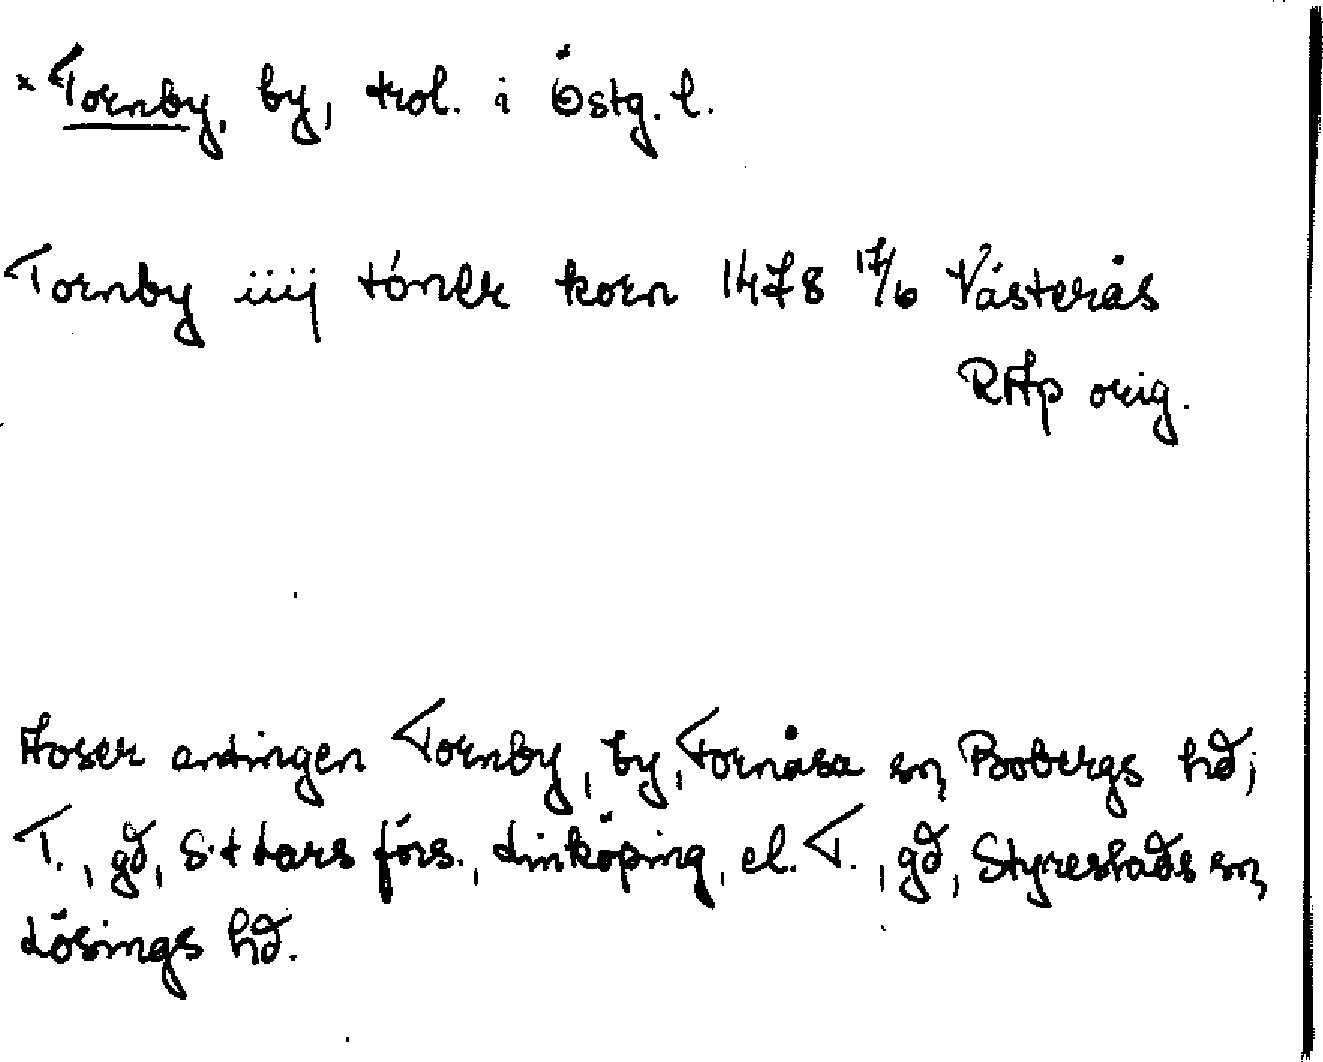 × Tornby, by, trol. i Östg. l.
Tornby iiij tóner korn 1478 17/6 Västerås
RAp orig.
Avser antingen Tornby, by, Fornåsa sn, Bobergs hd;
T., gd, S:t Lars förs., Linköping, el. T., gd, Styrestads sn,
Lösings hd.